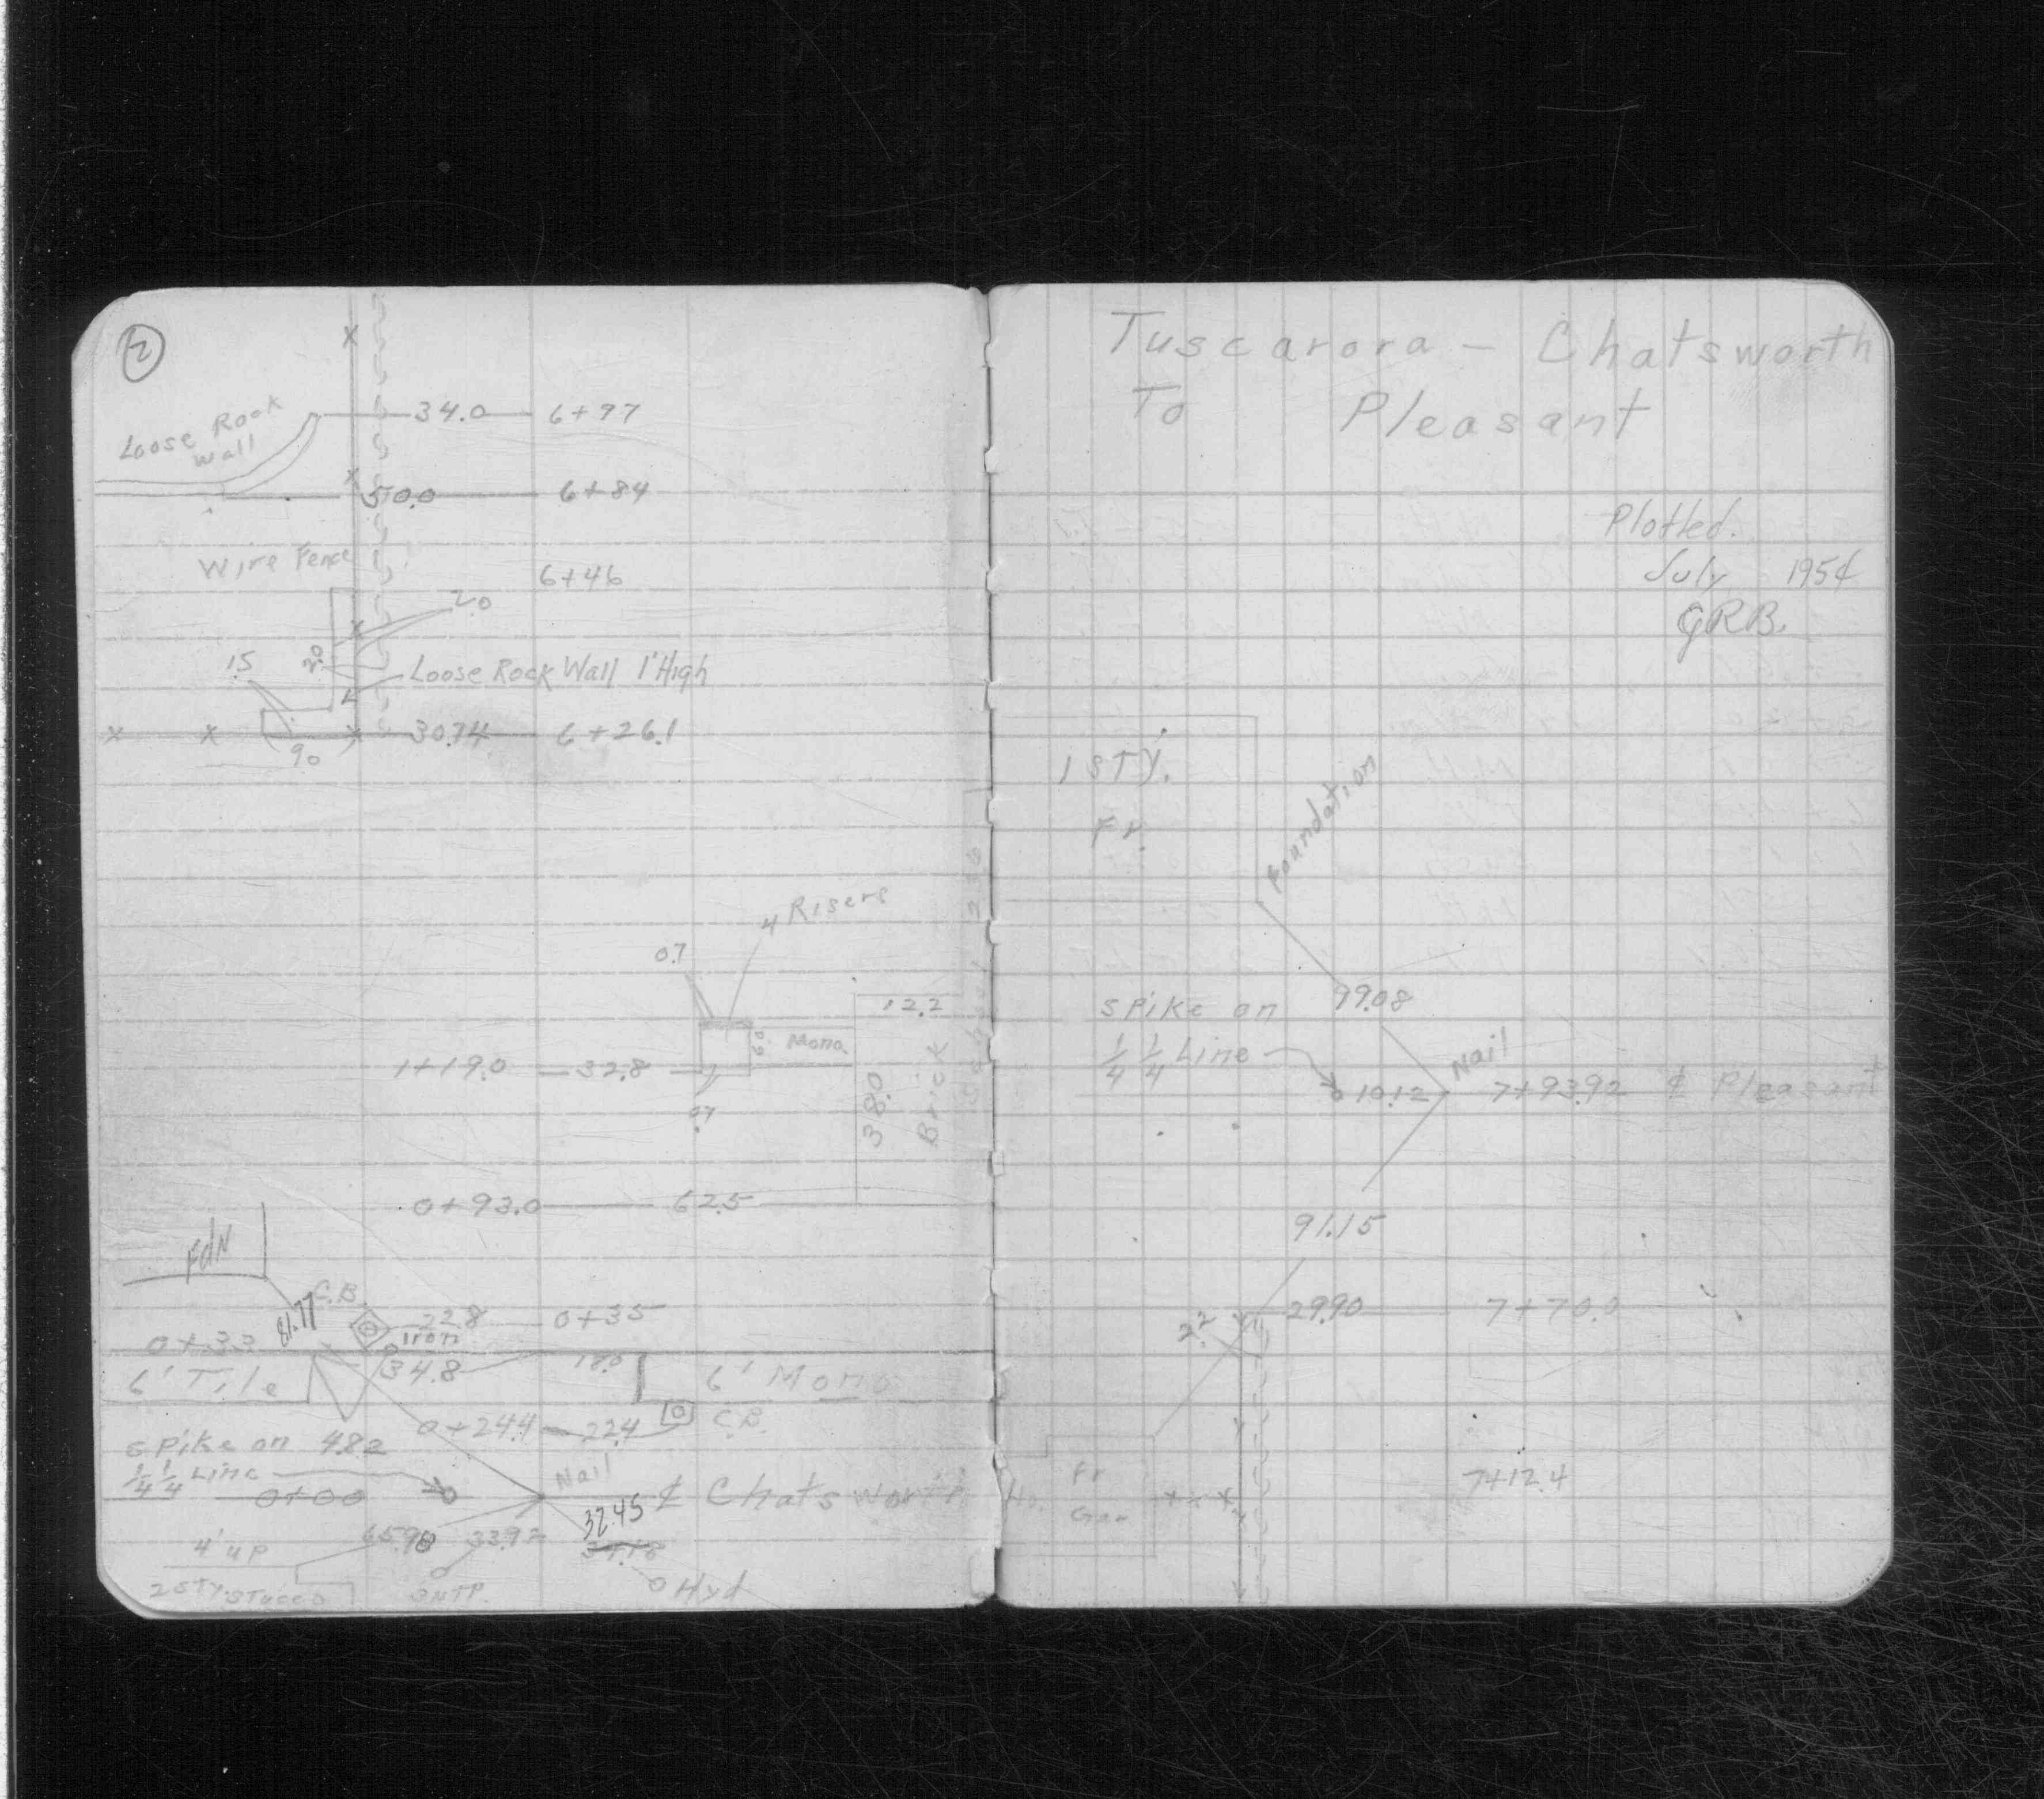 2
Loose Rock
Wall
34.0 6+97
50.0 6+84
Wire Fence
6+46
2.0
1.5
2.0
Loose Rock Wall 1' High
30.74 6+26.1
9.0
4 Risers
0.7
12.2
6.0
Mono.
1+19.0 32.8
0.7
38.0
Brick
0+93.0 62.5
Fdn
81.77
C.B.
22.8 0+35
Iron
34.8
18.0
6' Tile
6' Mono
0+24.4 22.4 C.B.
Spike on 4.82
1/4 1/4 Line
0+00
Nail
℄ Chatsworth
32.45
65.98 33.92
4' up
2 STY. Stucco
Hyd
Tuscarora - Chatsworth
To Pleasant
Plotted.
July 1954
GRB.
1 STY.
Fr.
Foundation
99.08
Spike on
1/4 1/4 Line
Nail
10.12 7+93.92 ℄ Pleasant
91.15
29.90 7+70.0
2.2
Fr
Gar
7+12.4